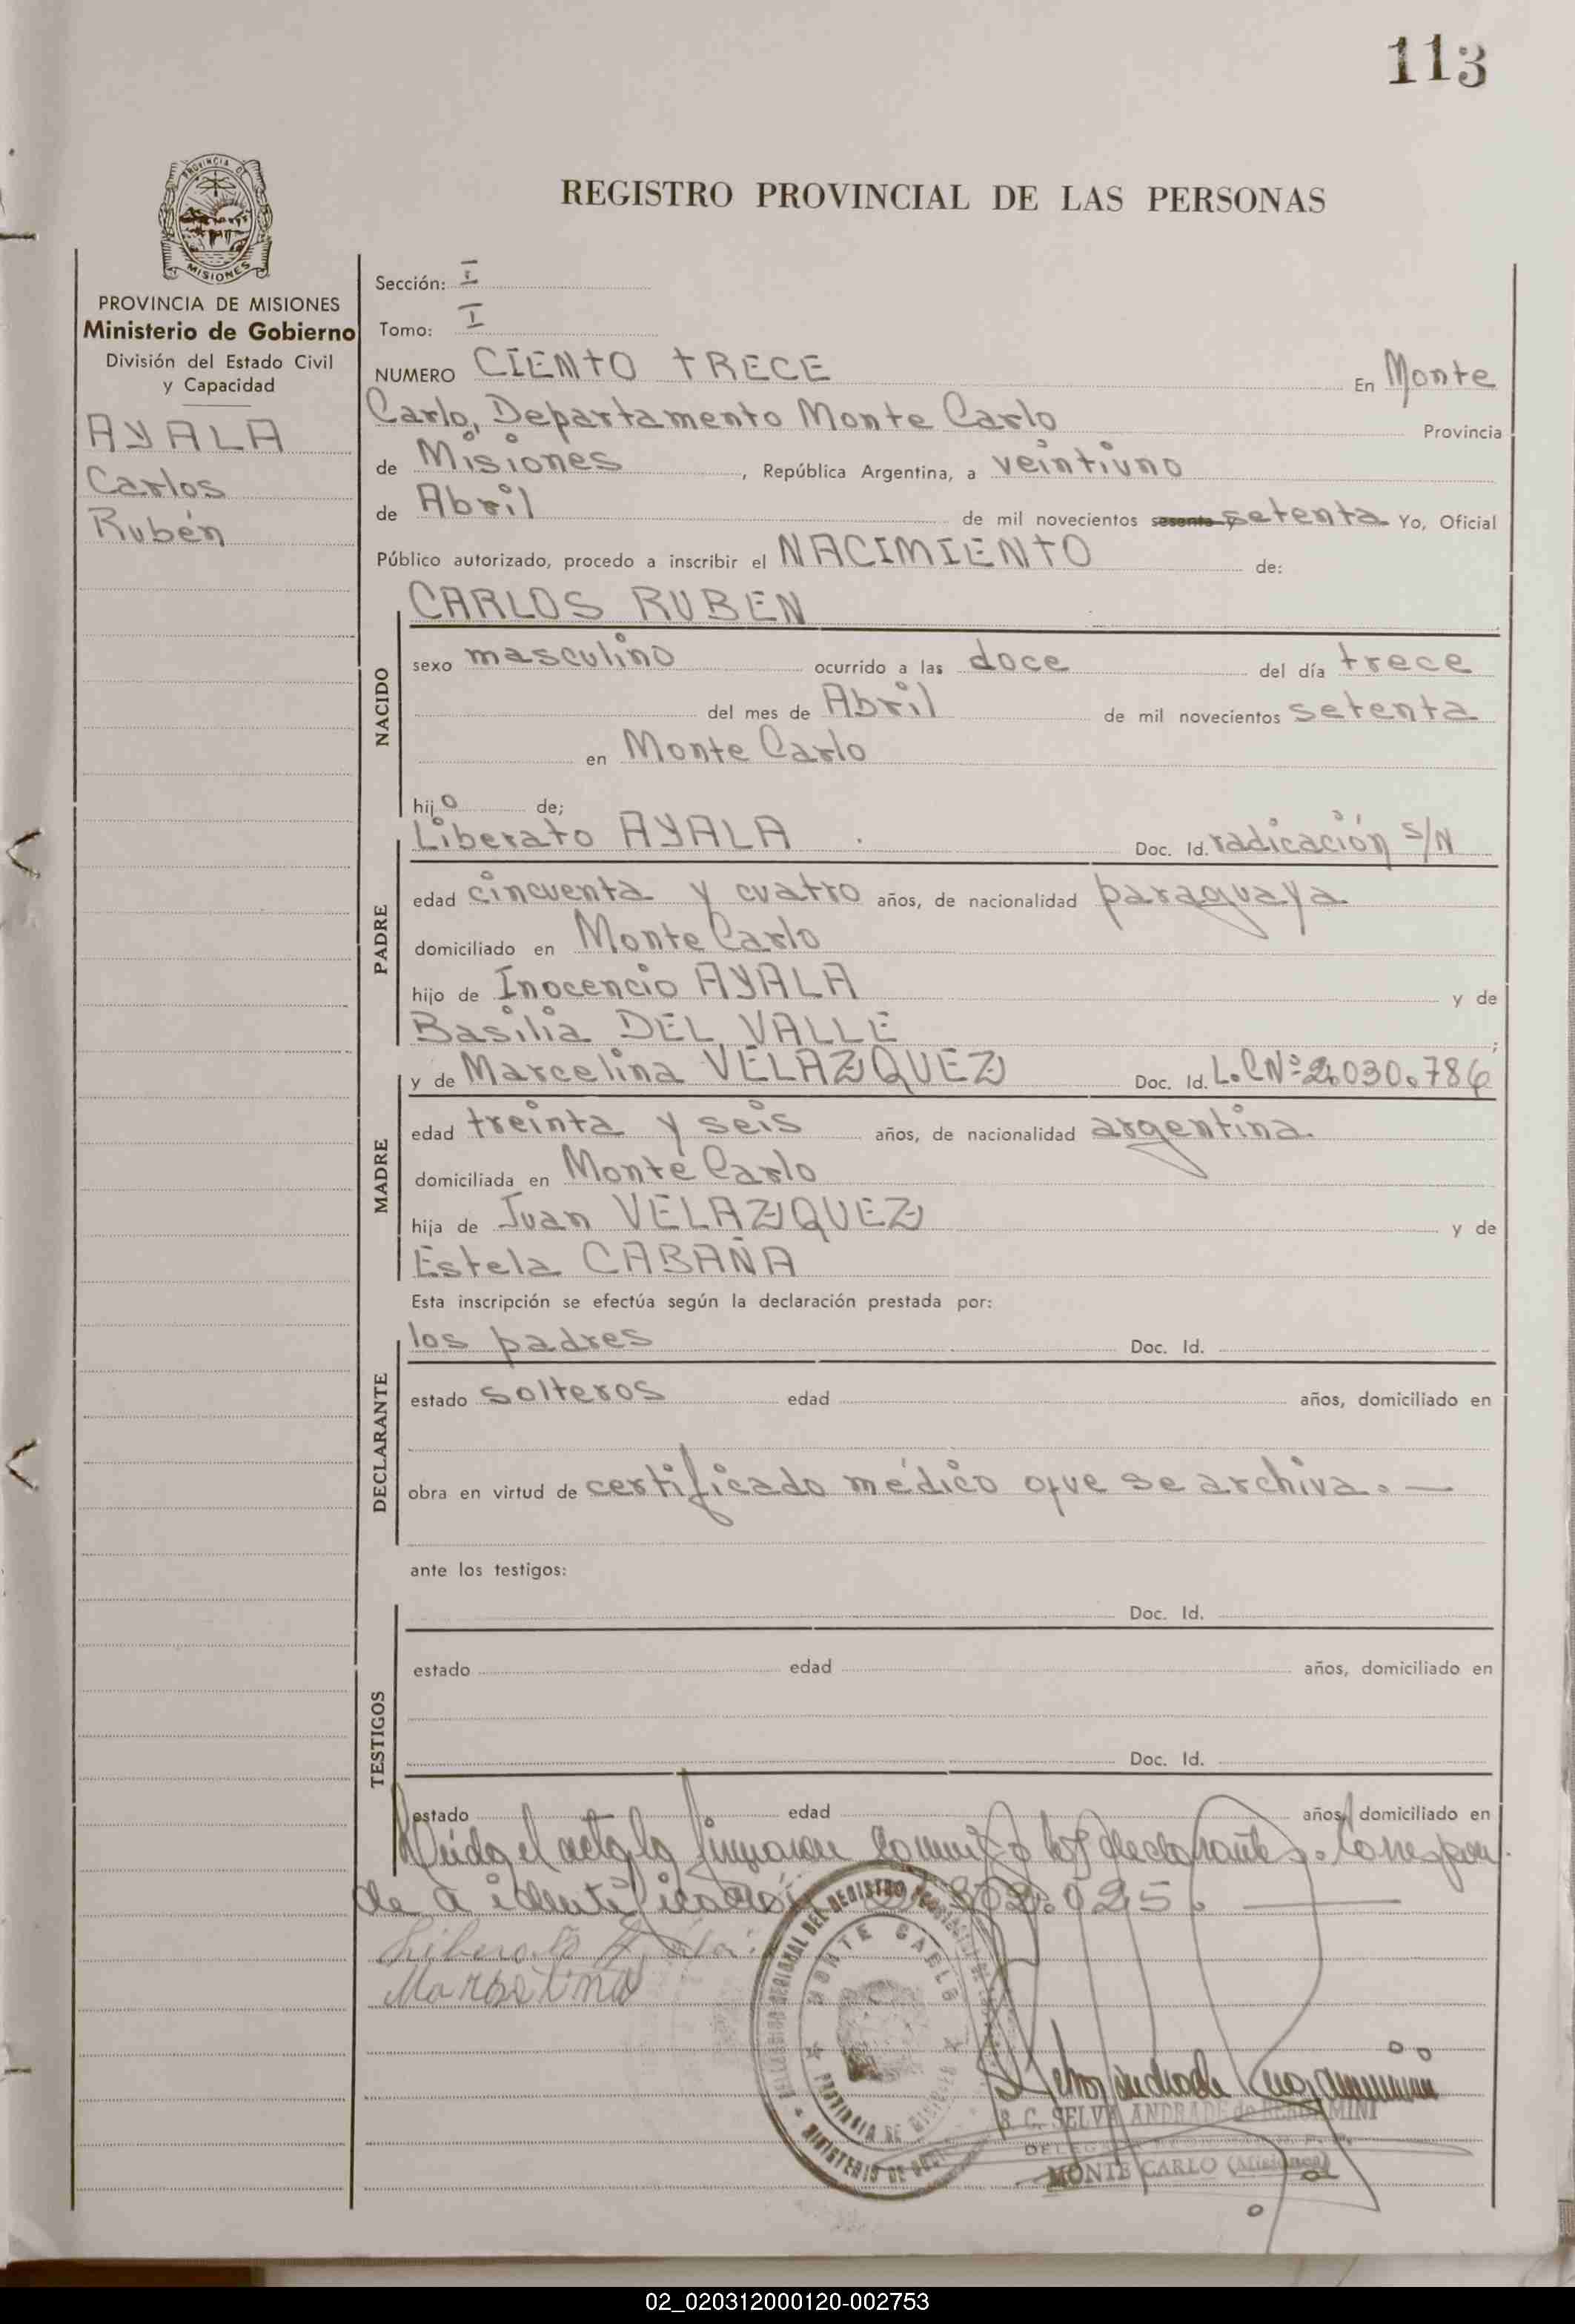 113
REGISTRO PROVINCIAL DE LAS PERSONAS
PROVINCIA DE
MISIONES
PROVINCIA DE MISIONES
Ministerio de Gobierno
División del Estado Civil
y Capacidad
AYALA
Carlos
Rubén
Sección: I
Tomo: I
NUMERO CIENTO TRECE En Monte
Carlo, Departamento Monte Carlo Provincia
de Misiones, República Argentina, a veintiuno
de Abril de mil novecientos sesenta setenta Yo, Oficial
Público autorizado, procedo a inscribir el NACIMIENTO de:
NACIDO
CARLOS RUBEN
sexo masculino ocurrido a las doce del día trece
del mes de Abril de mil novecientos setenta
en Monte Carlo
hijo de;
PADRE
Liberato AYALA Doc. Id. radicación S/N
edad cincuenta y cuatro años, de nacionalidad paraguaya
domiciliado en Monte Carlo
hijo de Inocencio AYALA y de
Basilia DEL VALLE ;
MADRE
y de Marcelina VELAZQUEZ Doc. Id. L.C Nº 2.030.786
edad treinta y seis años, de nacionalidad argentina.
domiciliada en Monte Carlo
hija de Juan VELAZQUEZ y de
Estela CABAÑA
Esta inscripción se efectúa según la declaración prestada por:
DECLARANTE
los padres Doc. Id.
estado solteros edad años, domiciliado en
obra en virtud de certificado médico que se archiva. —
ante los testigos:
TESTIGOS
Doc. Id.
estado edad años, domiciliado en
Doc. Id.
estado edad años, domiciliado en
Leida el acta la firmaron conmigo los declarantes. Correspon
de a identificación 802.025. —
Liberato Ayala
Marcelina
MONTE CARLO
PROVINCIA DE MISIONES
MINISTERIO DE
S. C. SELVA ANDRADE de BENJAMINI
MONTE CARLO (Misiones)
02_020312000120-002753